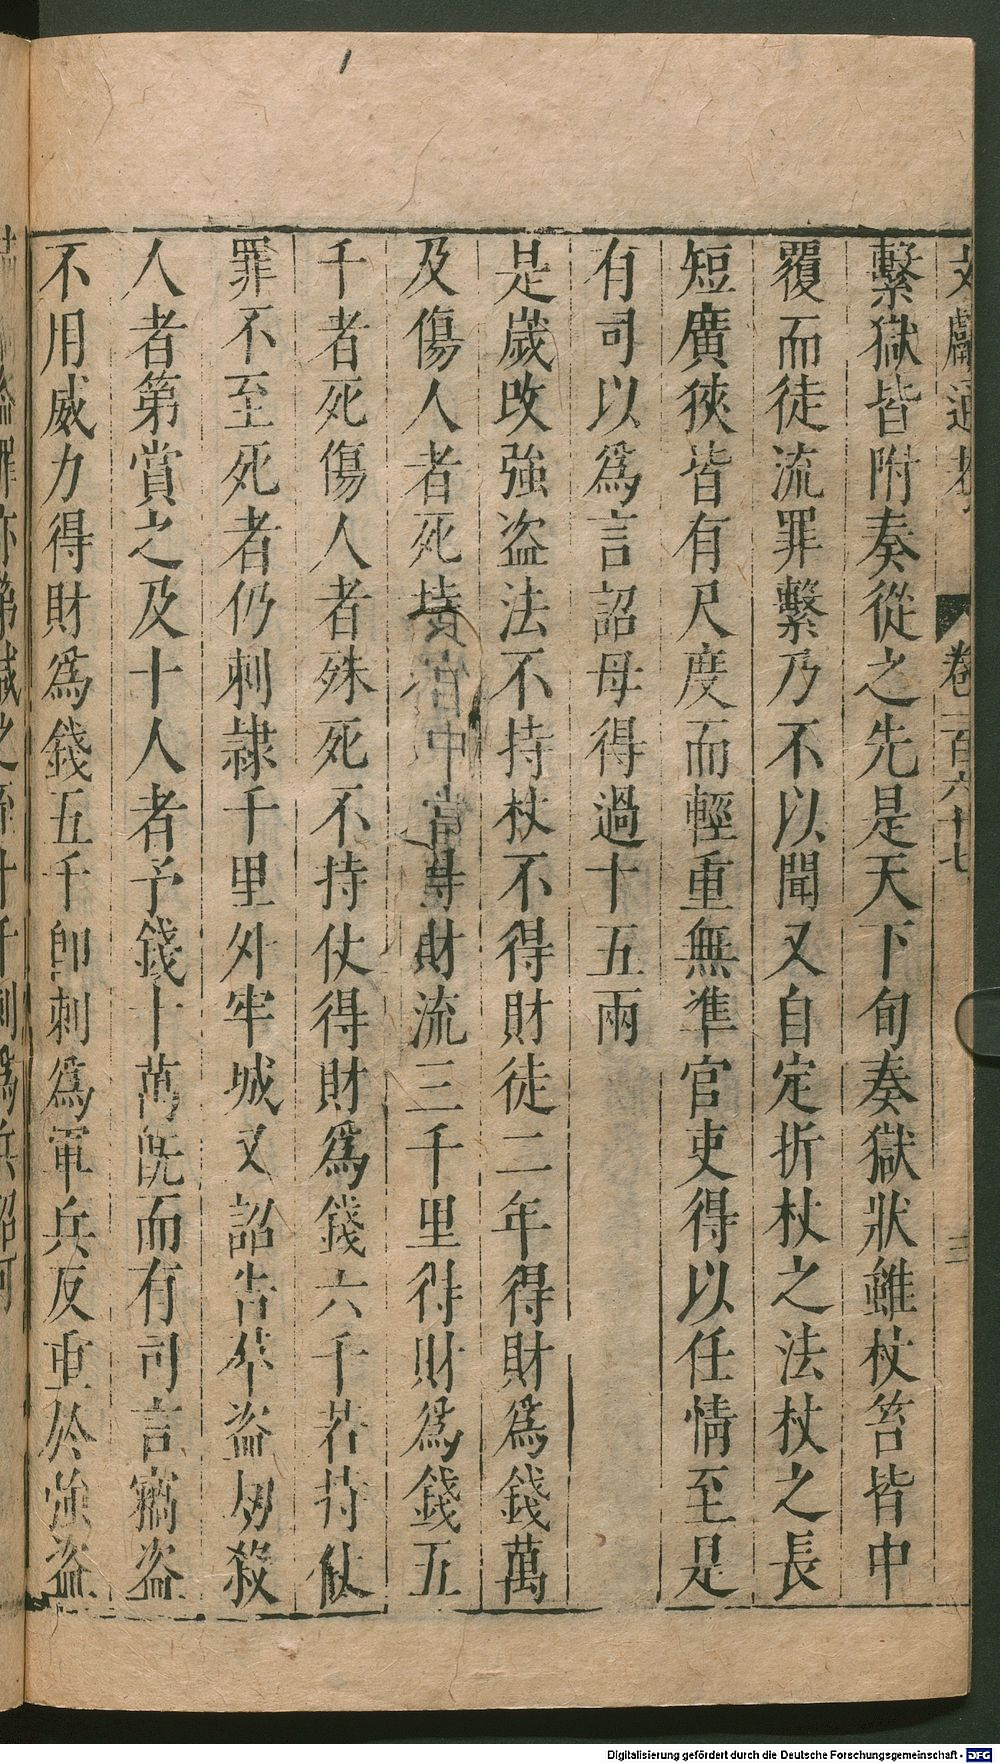 文獻通考 卷一百六十七 三
繫獄皆附奏從之先是天下旬奏獄狀雖杖笞皆申
覆而徒流罪繫乃不以聞又自定折杖之法杖之長
短廣狹皆有尺度而輕重無準官吏得以任情至是
有司以爲言詔毋得過十五兩
是歲改強盜法不持杖不得財徒二年得財爲錢萬
及傷人者死持 財流三千里得財爲錢五
千者死傷人者殊死不持仗得財爲錢六千若持仗
罪不至死者仍刺隷千里外牢城又詔告羣盜刼殺
人者第賞之及十人者予錢十萬旣而有司言竊盜
不用威力得財爲錢五千卽刺爲軍兵反重於強盜
Digitalisierung gefördert durch die Deutsche Forschungsgemeinschaft - DFG